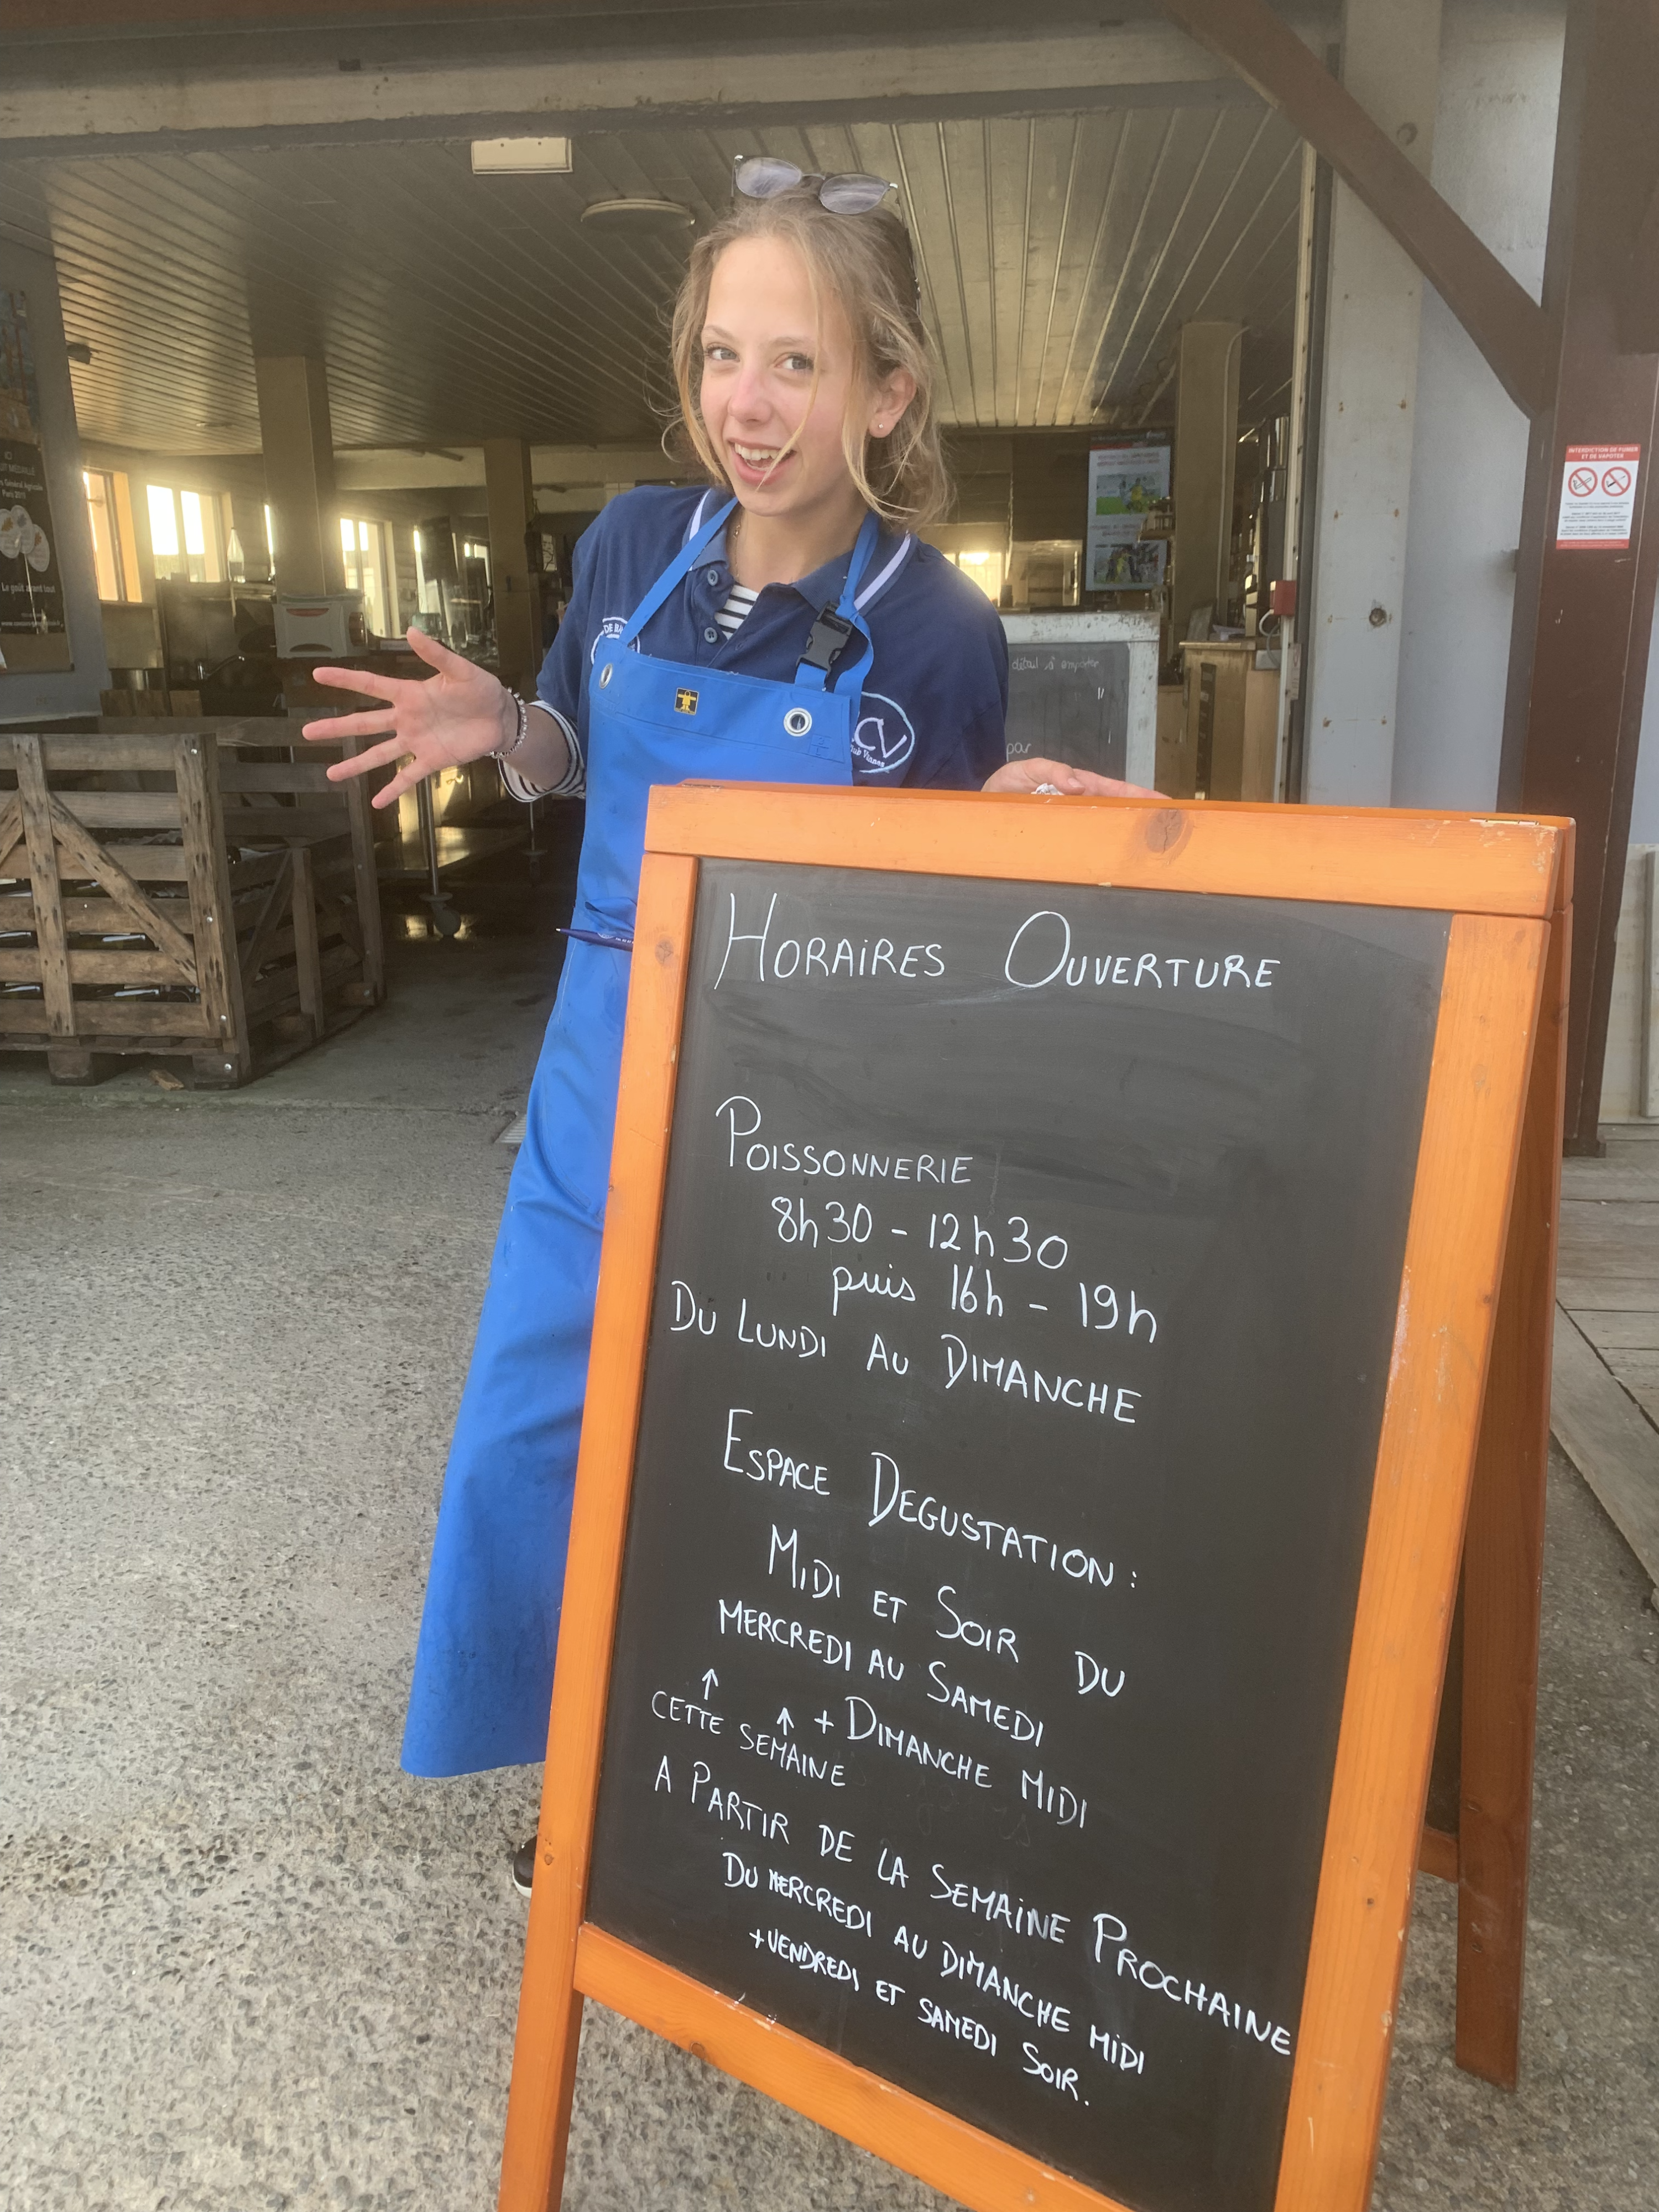 HORAIRES OUVERTURE
POISSONNERIE
8h30 - 12h30
puis 16h - 19h
DU LUNDI AU DIMANCHE
ESPACE DEGUSTATION :
MIDI ET SOIR DU
MERCREDI AU SAMEDI
↑ ↑ + DIMANCHE MIDI
CETTE SEMAINE
A PARTIR DE LA SEMAINE PROCHAINE
DU MERCREDI AU DIMANCHE MIDI
+ VENDREDI ET SAMEDI SOIR.
INTERDICTION DE FUMER
ET DE VAPOTER
détail à emporter
par
CV
ICI
Paris
Le goût avant tout
DE